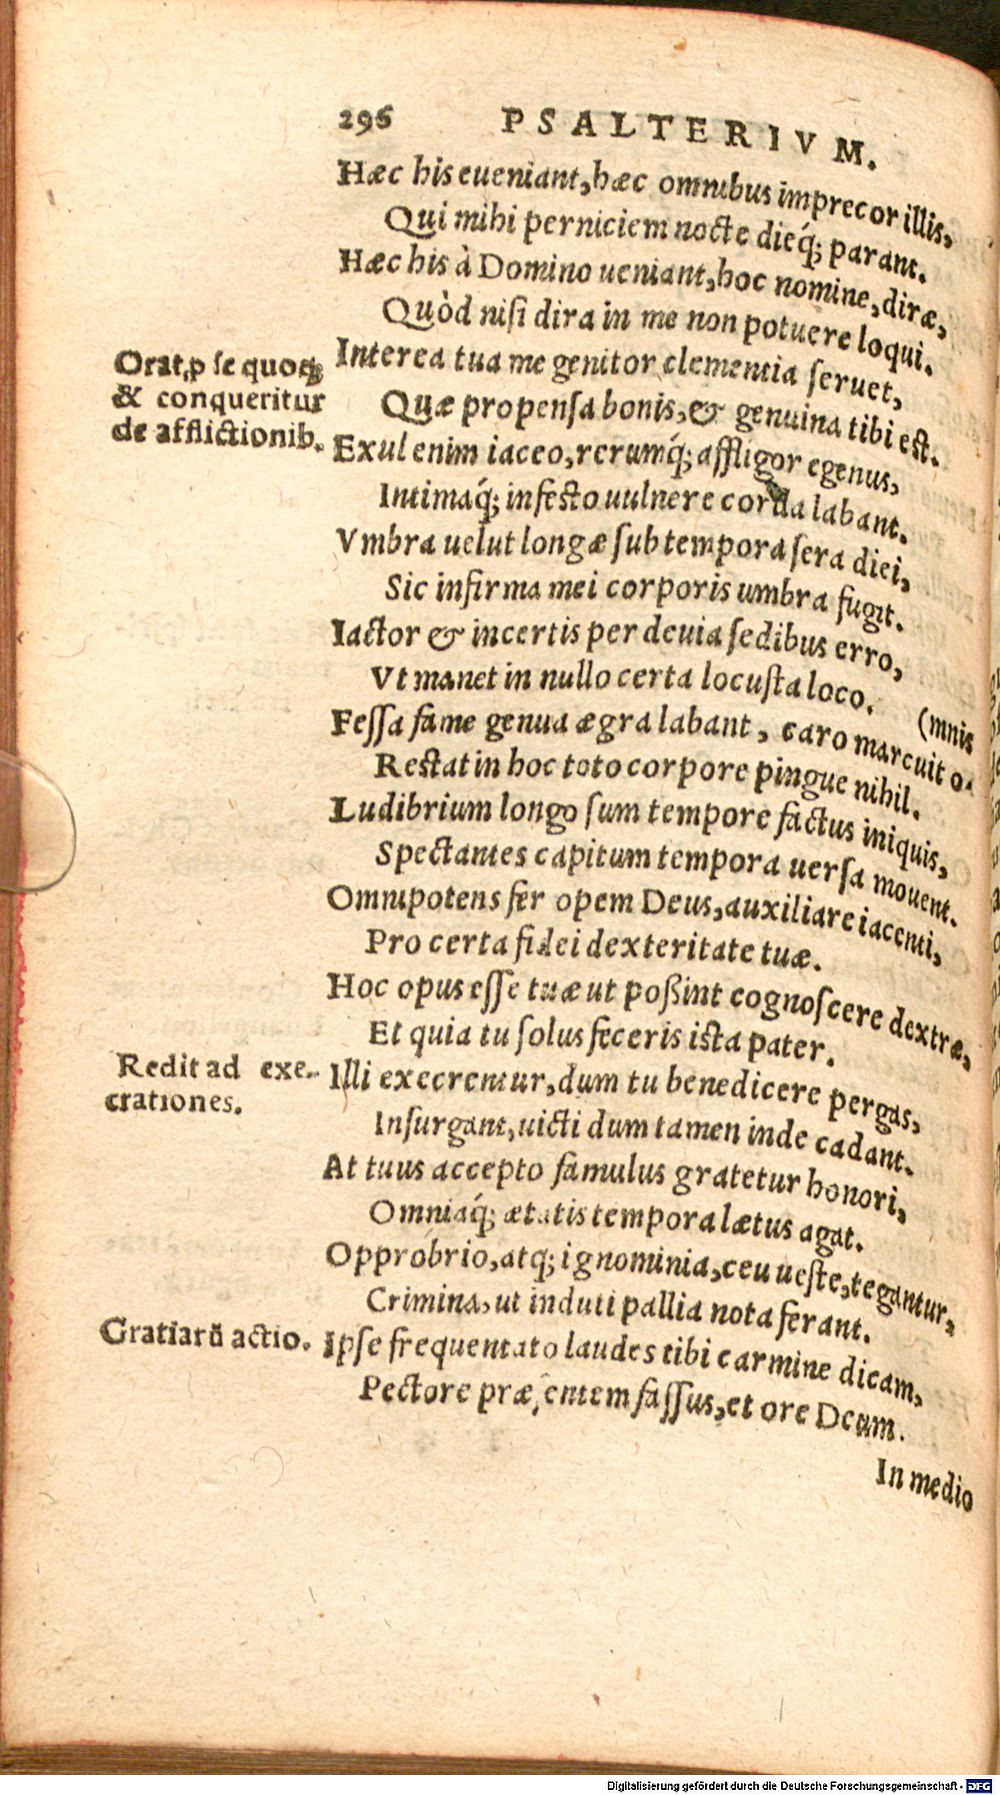 296 PSALTERIVM.
Hæc his eueniant, hæc omnibus imprecor illis,
Qui mihi perniciem nocte dieq́; parant.
Hæc his à Domino ueniant, hoc nomine, diræ,
Quòd nisi dira in me non potuere loqui.
Orat ꝓ se quoqꝫ
& conqueritur
de afflictionib.
Interea tua me genitor clementia seruet,
Quæ propensa bonis, & genuina tibi est.
Exul enim iaceo, rerumq́; affligor egenus,
Intimaq́; infesto uulnere corda labant.
Vmbra uelut longæ sub tempora sera diei,
Sic infirma mei corporis umbra fugit.
Iactor & incertis per deuia sedibus erro,
Vt manet in nullo certa locusta loco.
(mnis
Fessa fame genua ægra labant, caro marcuit o-
Restat in hoc toto corpore pingue nihil.
Ludibrium longo sum tempore factus iniquis,
Spectantes capitum tempora uersa mouent.
Omnipotens fer opem Deus, auxiliare iacenti,
Pro certa fidei dexteritate tuæ.
Hoc opus esse tuæ ut poßint cognoscere dextræ,
Et quia tu solus feceris ista pater.
Redit ad exe-
crationes.
Illi execrentur, dum tu benedicere pergas,
Insurgant, uicti dum tamen inde cadant.
At tuus accepto famulus gratetur honori,
Omniaq́; ætatis tempora lætus agat.
Opprobrio, atq; ignominia, ceu ueste, tegantur,
Crimina, ut induti pallia nota ferant.
Gratiarū actio.
Ipse frequentato laudes tibi carmine dicam,
Pectore præsentem fassus, et ore Deum.
In medio
Digitalisierung gefördert durch die Deutsche Forschungsgemeinschaft - DFG